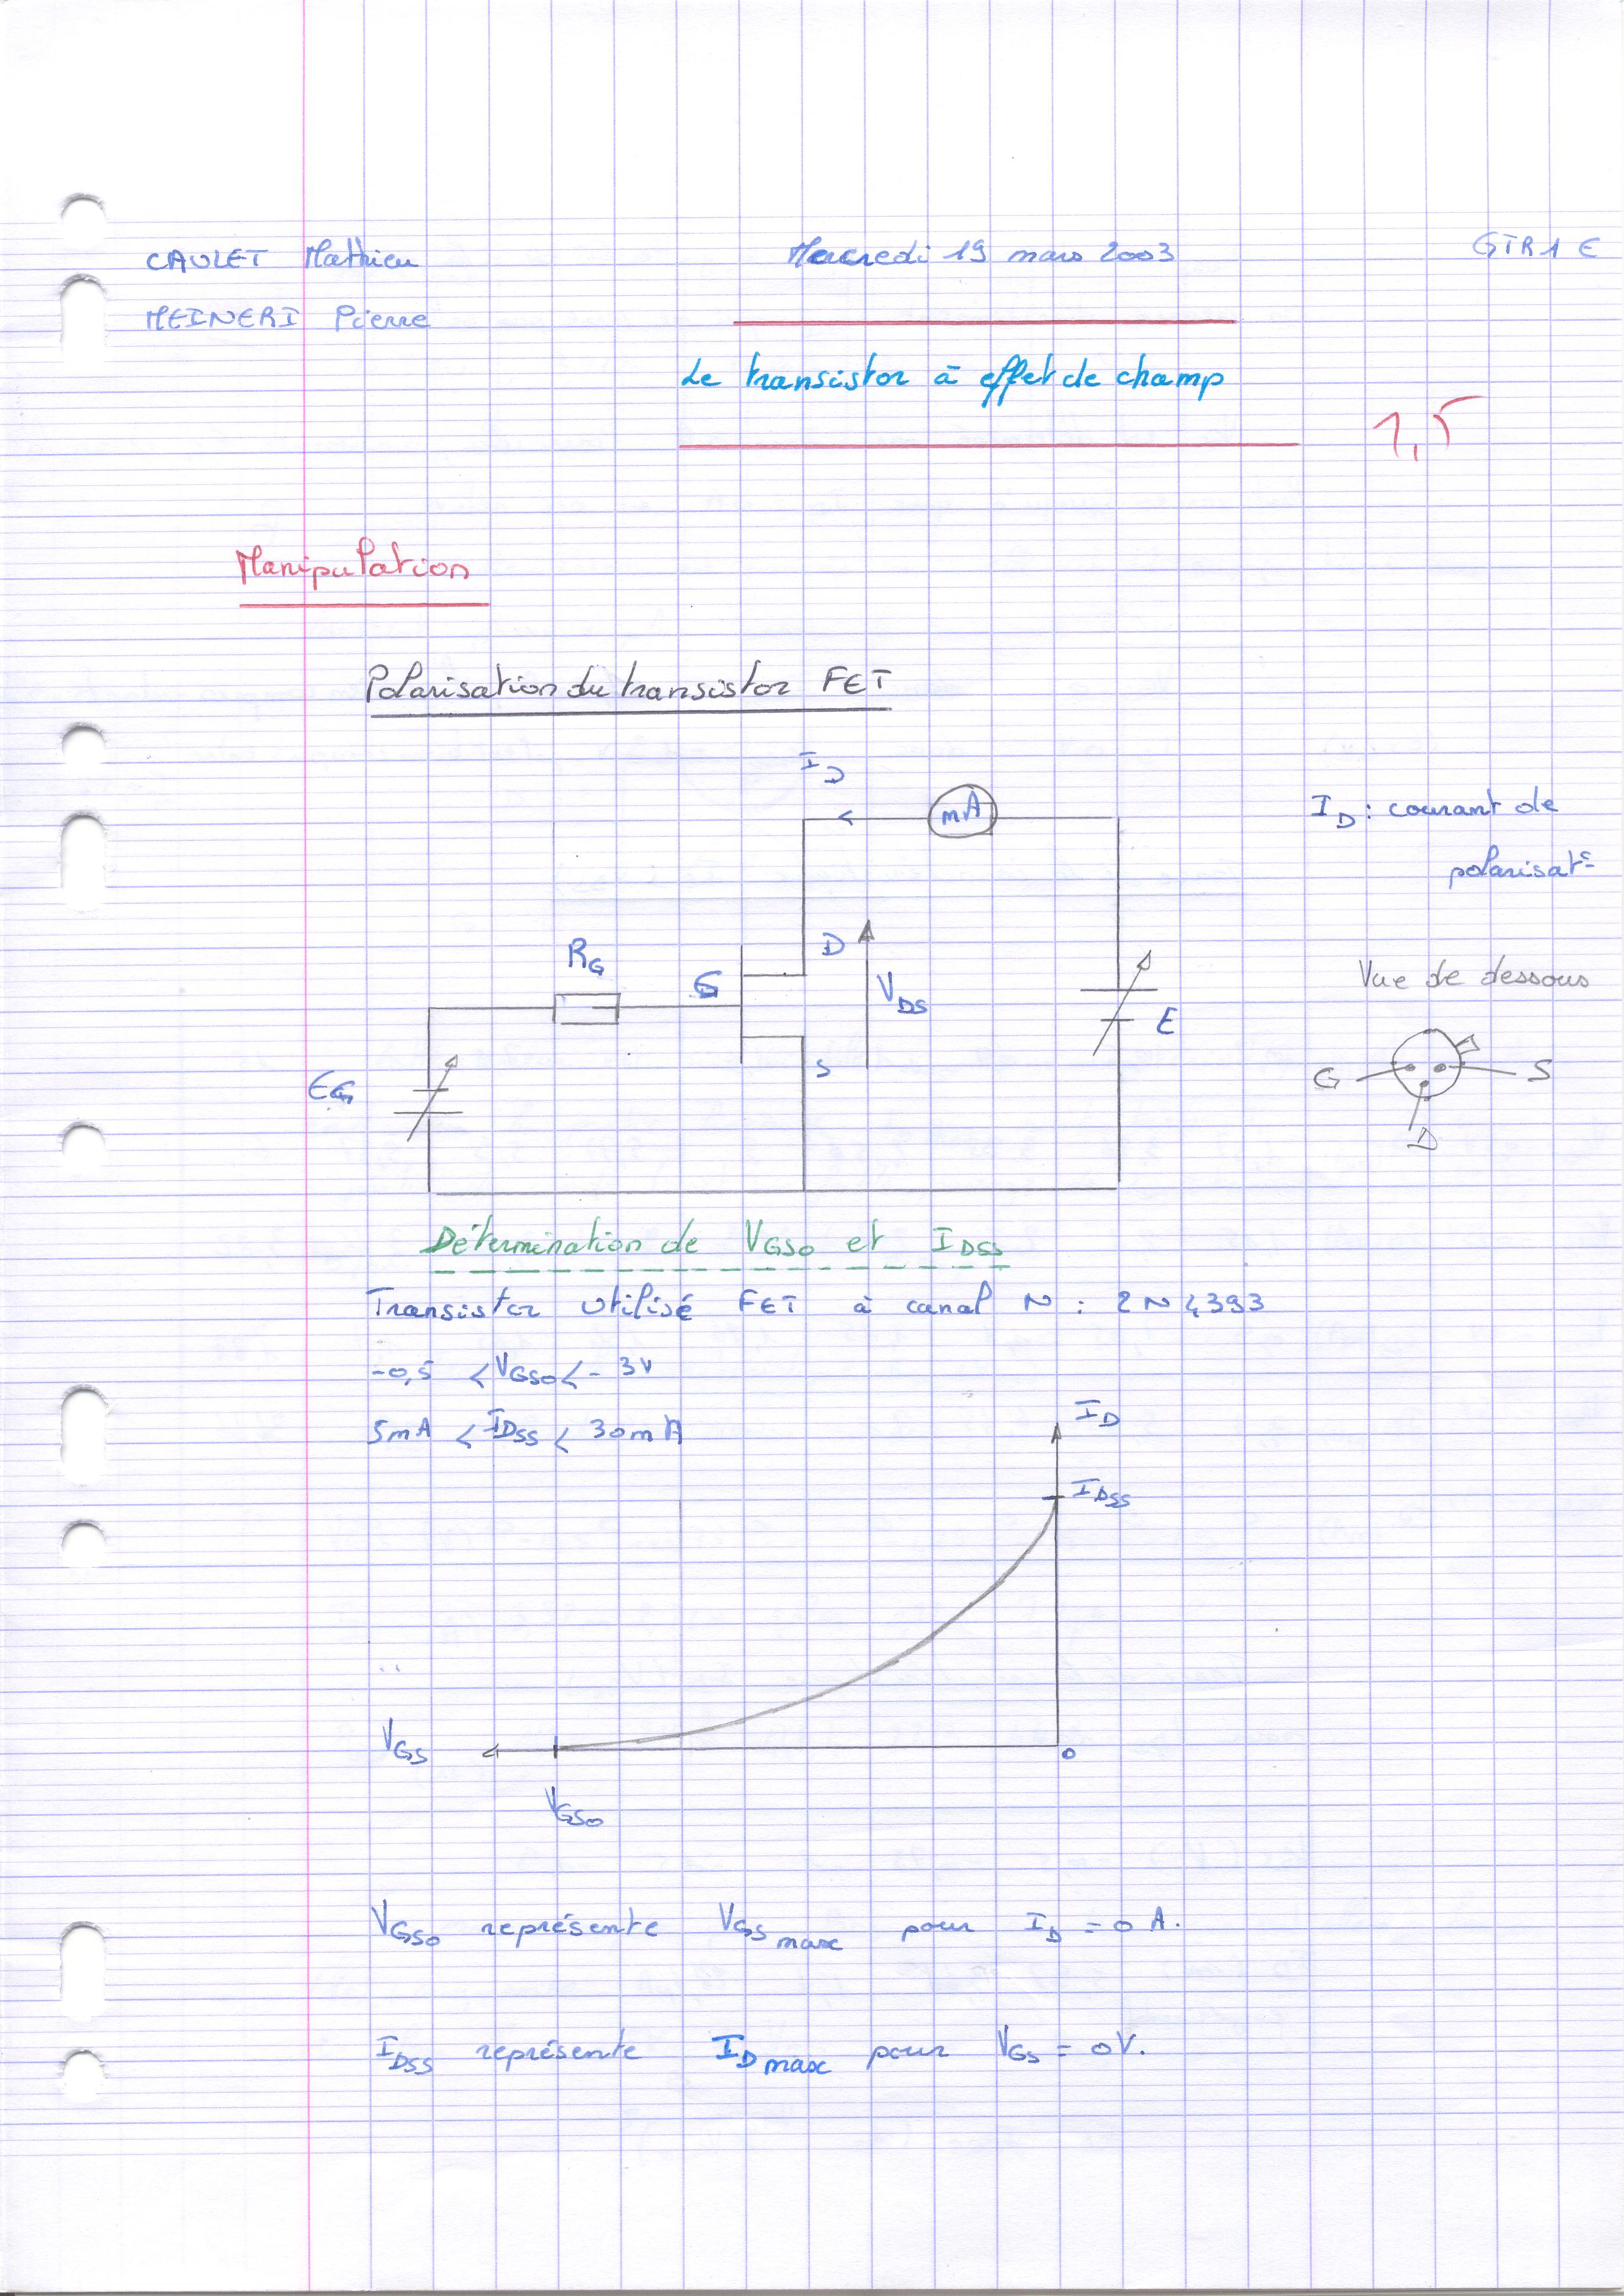 CAULET Mathieu
Mercredi 19 mars 2003
GTR1 E
MEINERI Pierre
Le transistor à effet de champ
1,5
Manipulation
Polarisation du transistor FET
ID
mA
ID : courant de
polarisat°
D
RG
G
VDS
E
S
EG
Vue de dessous
G
S
D
Détermination de VGSO et IDSS
Transistor utilisé FET à canal N : 2N4393
-0,5 < VGSO < - 3V
5mA < IDSS < 30mA
ID
IDSS
VGS
0
VGSO
VGSO représente VGS max pour ID = 0 A.
IDSS représente ID max pour VGS = 0V.